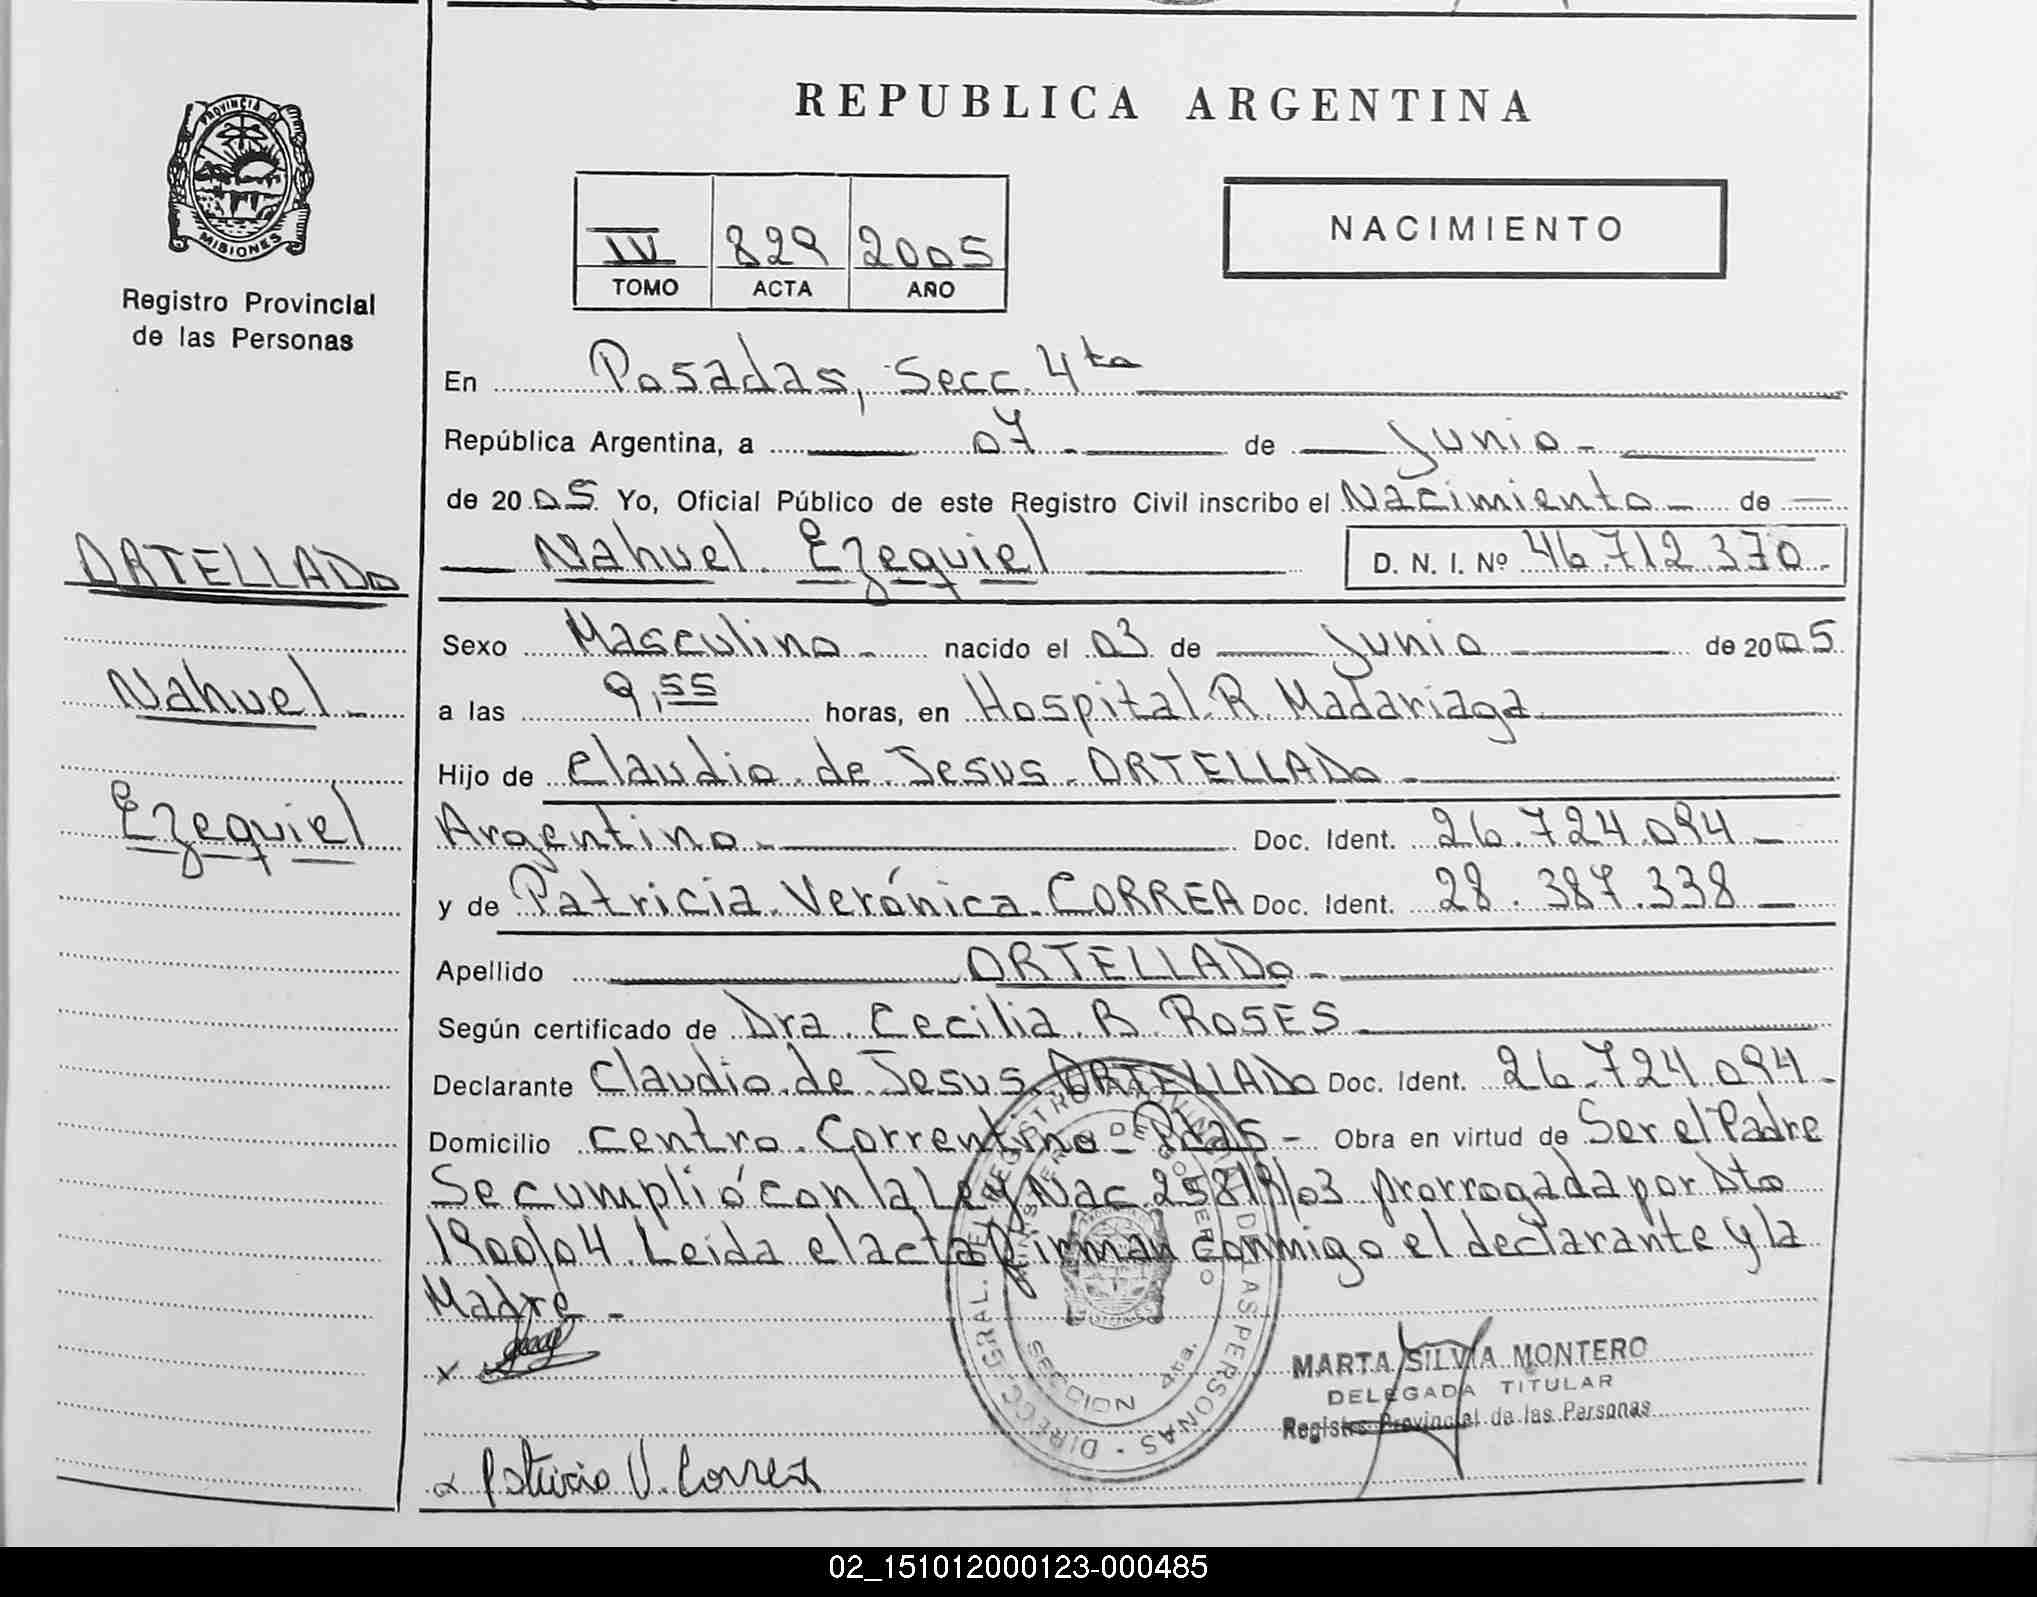 REPUBLICA ARGENTINA
PROVINCIA DE
MISIONES
Registro Provincial
de las Personas
IV 829 2005
TOMO ACTA AÑO
NACIMIENTO
En Posadas, Secc. 4ta
República Argentina, a 07 - de Junio -
de 2005 Yo, Oficial Público de este Registro Civil inscribo el Nacimiento - de
Nahuel Ezequiel D. N. I. Nº 46.712.370.-
ORTELLADO
Nahuel -
Ezequiel
Sexo Masculino - nacido el 03 de Junio de 2005
a las 9,55 horas, en Hospital R. Madariaga
Hijo de Claudio de Jesus ORTELLADO -
Argentino - Doc. Ident. 26.724.094 -
y de Patricia Verónica CORREA Doc. Ident. 28.387.338 -
Apellido ORTELLADO -
Según certificado de Dra. Cecilia B. ROSES
Declarante Claudio de Jesus ORTELLADO Doc. Ident. 26.724.094 -
Domicilio Centro Correntino - Pdas - Obra en virtud de Ser el Padre
Se cumplió con la Ley Nac 25819/03 prorrogada por Dto
1900/04. Leida el acta firman conmigo el declarante y la
Madre -
DIRECC. GRAL. DEL REGISTRO PROVINCIAL DE LAS PERSONAS
MINISTERIO DE GOBIERNO
SECCION 4ta.
MARTA SILVIA MONTERO
DELEGADA TITULAR
Registro Provincial de las Personas
x
x Patricia V. Correa
02_151012000123-000485